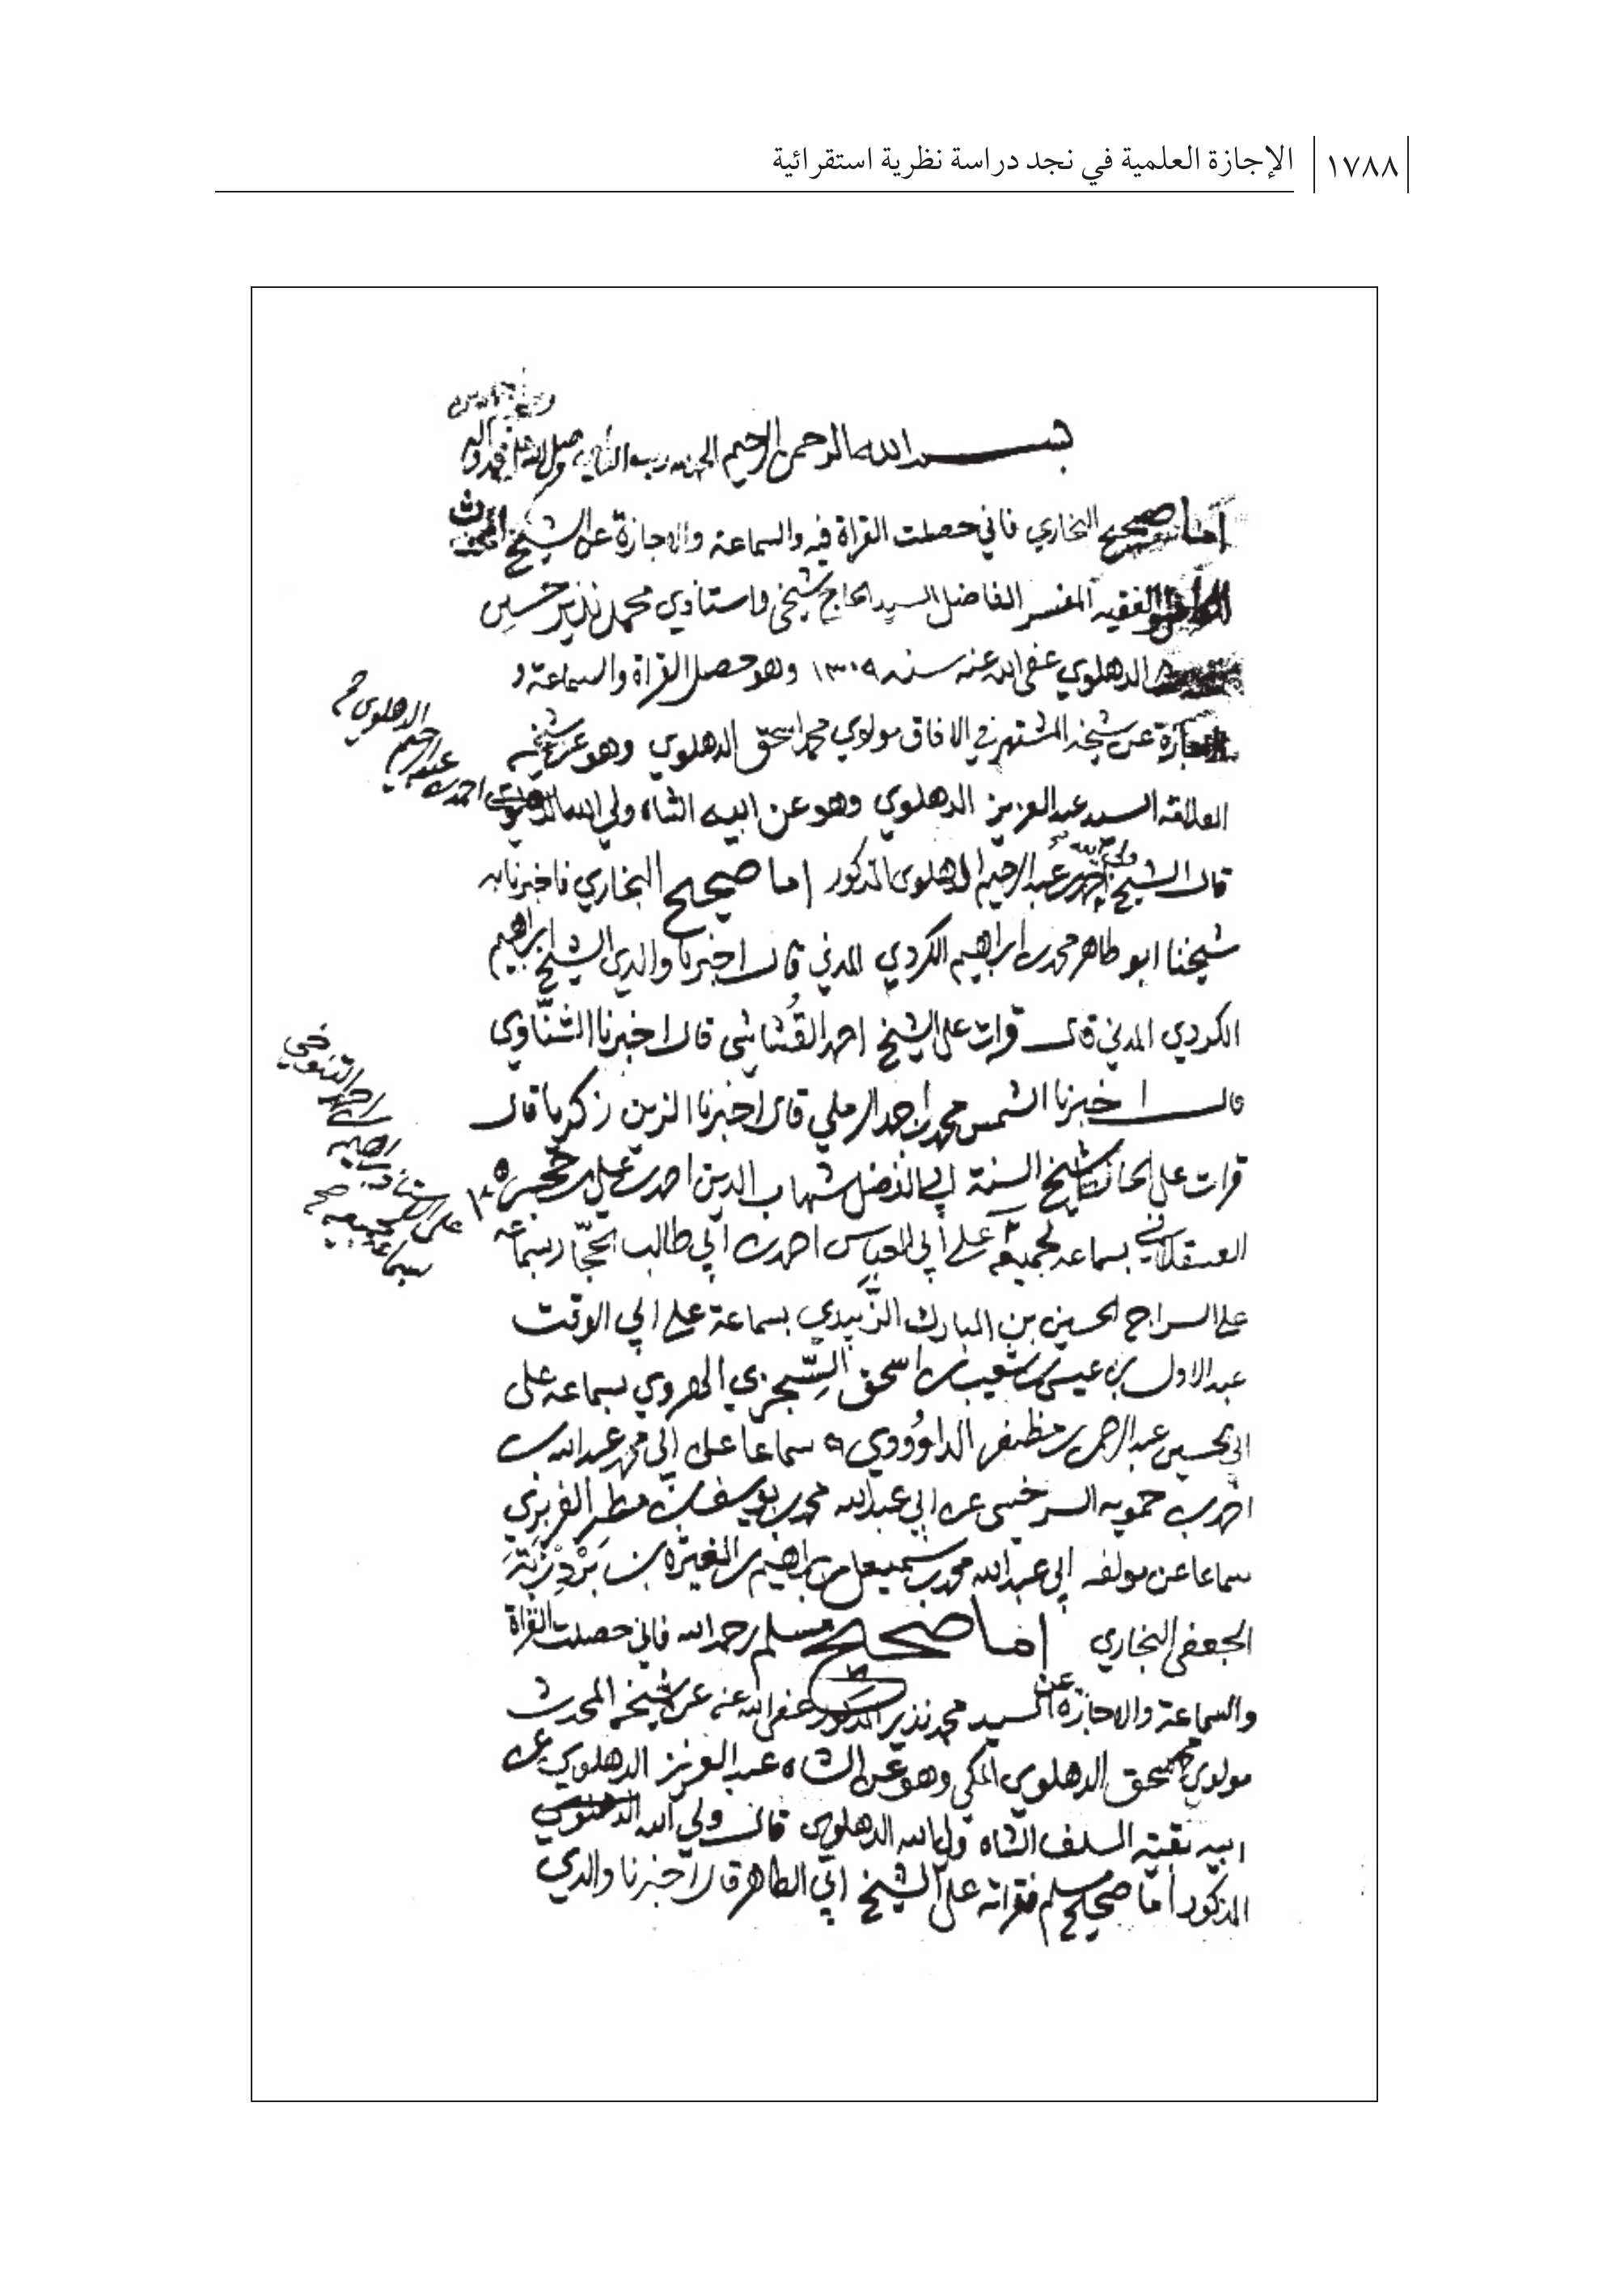 ١٧٨٨ الإجازة العلمية في نجد دراسة نظرية استقرائية
بسم الله الرحمن الرحيم الحمد لله رب العالمين
أما صحيح البخاري فاني حصلت القراة فيه والسماعة والاجازة عن الشيخ المحدث
الفقيه المفسر الفاضل السيد الحاج شيخي واستاذي محمد نذير حسين
الدهلوي عفى الله عنه سنه ١٣٠٩ وهو حصل القراة والسماعة و
عن شيخه المشتهر في الافاق مولوي محمد اسحق الدهلوي وهو عن شيخه
العلامة السيد عبد العزيز الدهلوي وهو عن ابيه الشاه ولي الله
احمد بن عبد الرحيم الدهلوي
قال الشيخ ولي الله عبد الرحيم الدهلوى المذكور اما صحيح البخاري فاخبرنا به
شيخنا ابو طاهر محمد بن ابراهيم الكردي المدني قال اخبرنا والدي الشيخ ابراهيم
الكردي المدني قال قرات على الشيخ احمد القُشاشى قال اخبرنا الشنّاوى
قال اخبرنا الشمس محمد بن احمد الرملي قال اخبرنا الزين زكريا قال
قرات على الحافظ شيخ السنة ابي الفضل شهاب الدين احمد بن علي بن حجر
العسقلاني بسماعه لجميعه على أبي العباس احمد بن ابي طالب الحجّار بسماعه
على السراج الحسين بن المبارك الزَّبيدي بسماعة على ابي الوقت
عبد الاول بن عيسى بن شعيب بن اسحق السِّجزي الهروي بسماعه على
ابي الحسين عبد الرحمن بن مظفر الداوُودي سماعا على ابي محمد عبد الله بن
احمد بن حمويه السرخسى عن ابي عبد الله محمد بن يوسف بن مطر الفربري
سماعا عن مولفه ابي عبد الله محمد بن اسمعيل بن ابراهيم بن المغيرة بن بَرْدِزْبَةَ
الجعفى البخاري اما صحيح مسلم رحمه الله فاني حصلت القراة
والسماعة والاجازة عن السيد محمد نذير المذكور عفى الله عنه عن شيخه المحدث
مولوي محمد اسحق الدهلوي المكي وهو عن الشاه عبد العزيز الدهلوي عن
ابيه بقية السلف الشاه ولي الله الدهلوى قال ولي الله الدهلوي
المذكور أما صحيح مسلم فقراته على الشيخ ابي الطاهر قال اخبرنا والدي